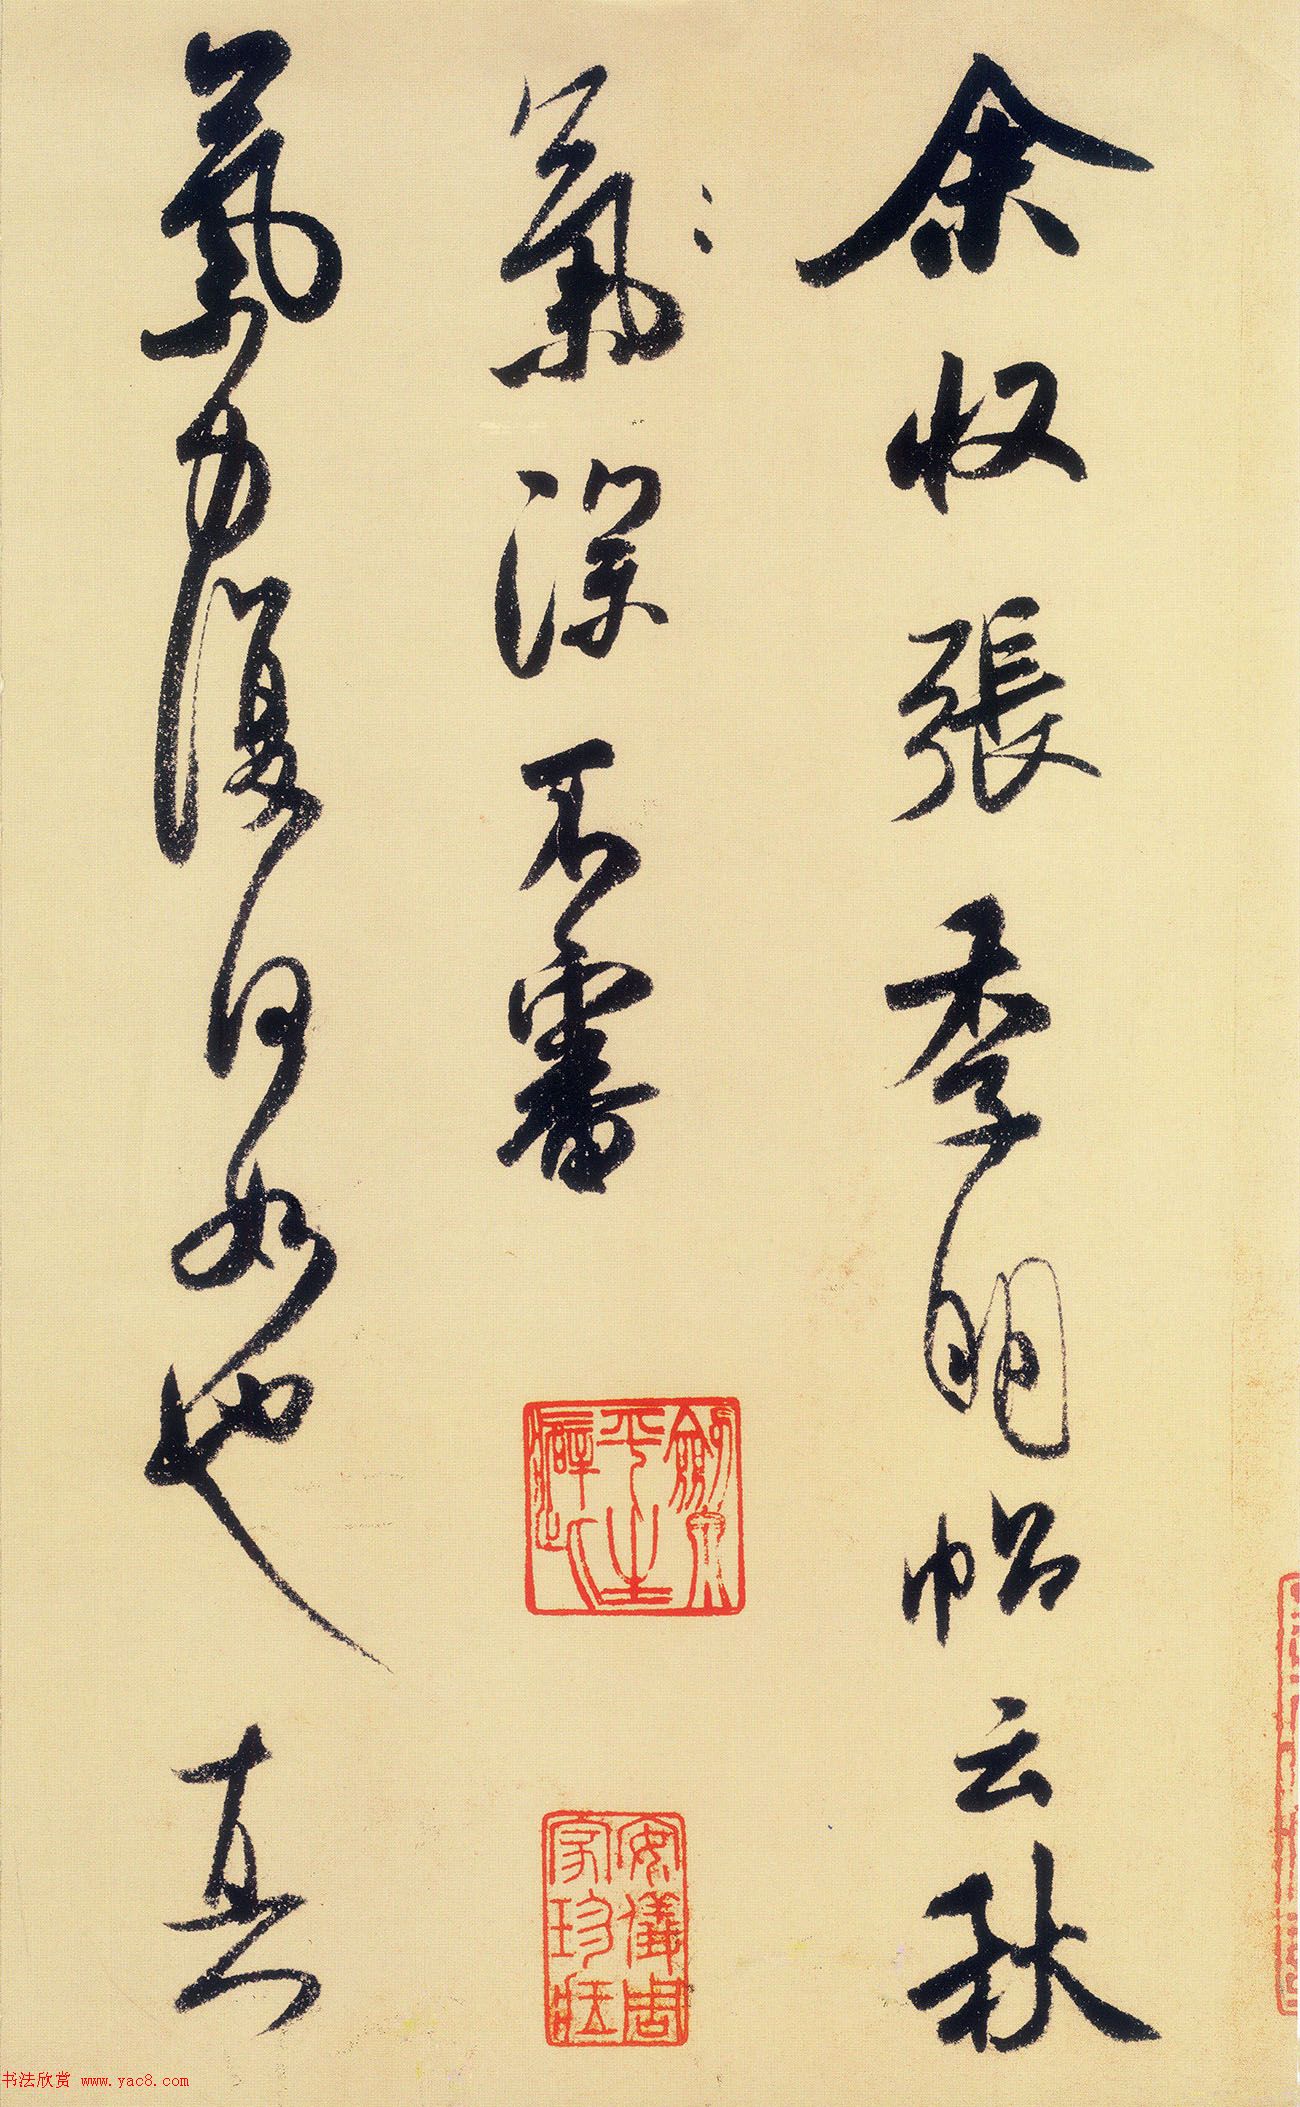 余收張季明帖云秋
氣深不審
氣力復何如也真
平生
安儀周
家珍藏
书法欣赏 www.yac8.com